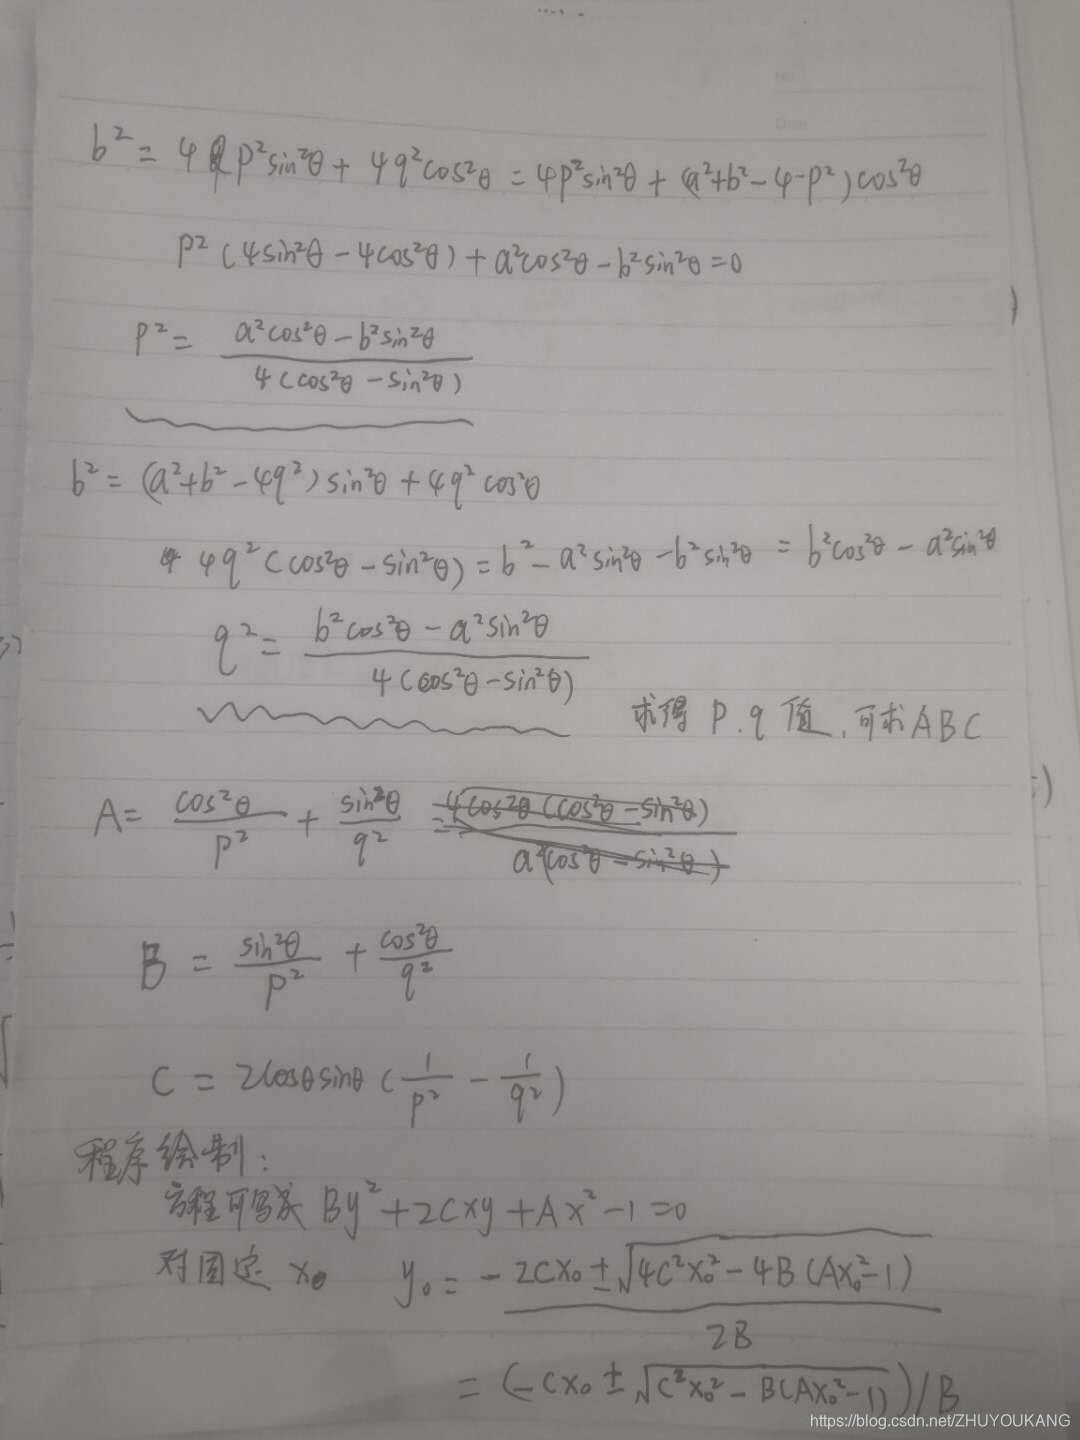 b² = 4p²sin²θ + 4q²cos²θ = 4p²sin²θ + (a²+b²-4·p²)cos²θ
p²(4sin²θ - 4cos²θ) + a²cos²θ - b²sin²θ = 0
p² = (a²cos²θ - b²sin²θ) / (4(cos²θ - sin²θ))
b² = (a²+b²-4q²)sin²θ + 4q²cos²θ
4q²(cos²θ - sin²θ) = b² - a²sin²θ - b²sin²θ = b²cos²θ - a²sin²θ
q² = (b²cos²θ - a²sin²θ) / (4(cos²θ - sin²θ))
求得 P.q 值,可求ABC
A = cos²θ/p² + sin²θ/q² = 4cos²θ(cos²θ - sin²θ) / a²(cos²θ - sin²θ)
B = sin²θ/p² + cos²θ/q²
C = 2cosθsinθ(1/p² - 1/q²)
程序绘制:
方程可写成 By²+2Cxy+Ax²-1=0
对固定 x₀ y₀ = (-2Cx₀ ± √(4C²x₀² - 4B(Ax₀²-1))) / 2B
= (-Cx₀ ± √(C²x₀² - B(Ax₀²-1)))/B
https://blog.csdn.net/ZHUYOUKANG